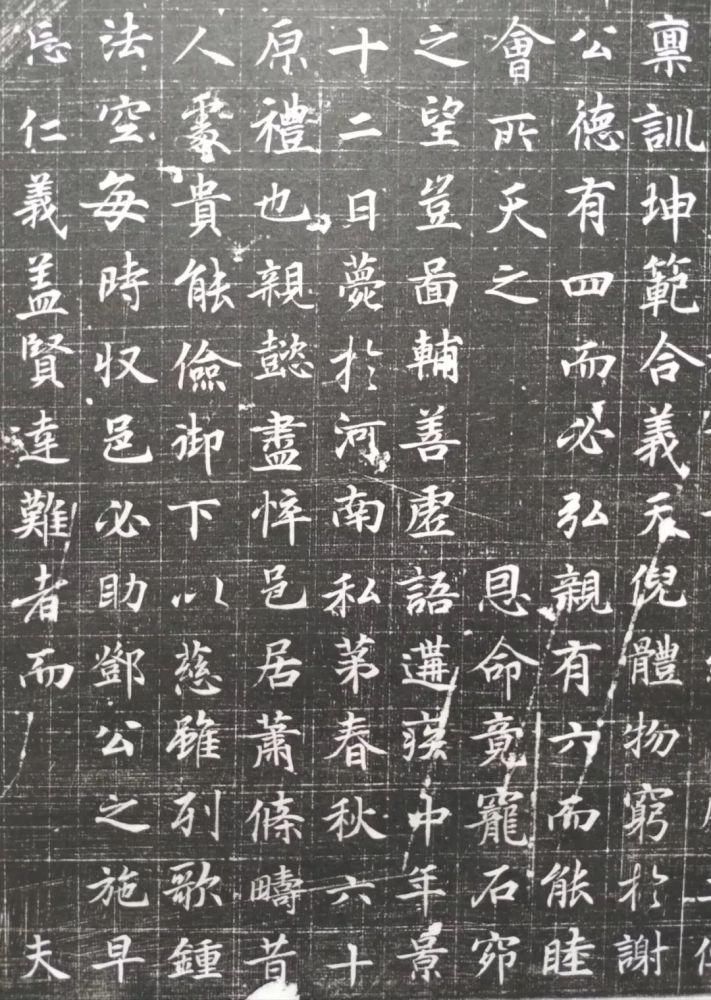 禀訓坤範合義天倪體物窮於謝
公德有四而必弘親有六而能睦
會所天之恩命竟寵石窌
之望豈啚輔善虛語遘疾中年景
十二日薨於河南私苐春秋六十
原禮也親懿盡悴邑居蕭條疇昔
人處貴能儉御下以慈雖列歌鍾
法空每時収邑必助鄧公之施早
忘仁義盖賢達難者而夫